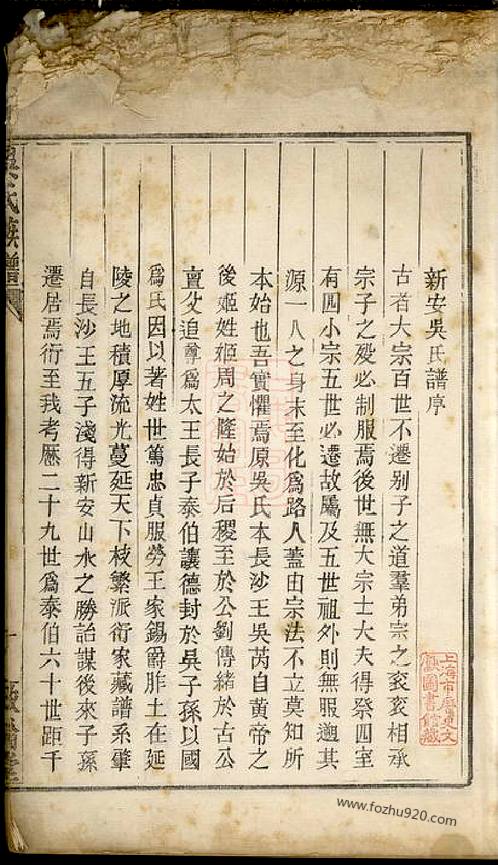 新安吳氏譜序
古者大宗百世不遷别子之道羣弟宗之衮衮相承
宗子之殁必制服焉後世無大宗士大夫得祭四室
有四小宗五世必遷故屬及五世祖外則無服廻其
源一人之身末至化爲路人蓋由宗法不立莫知所
本始也吾實懼焉原吳氏本長沙王吳芮自黄帝之
後姬姓姬周之隆始於后稷至於公劉傳緒於古公
亶父追尊爲太王長子泰伯讓德封於吳子孫以國
爲氏因以著姓世篤忠貞服勞王家錫爵胙土在延
陵之地積厚流光蔓延天下枝繁派衍家藏譜系肇
自長沙王五子淺得新安山水之勝詒謀後來子孫
遷居焉衍至我考歷二十九世爲泰伯六十世距千
吳氏族譜
上海市歷史文
獻圖書館藏
www.fozhu920.com